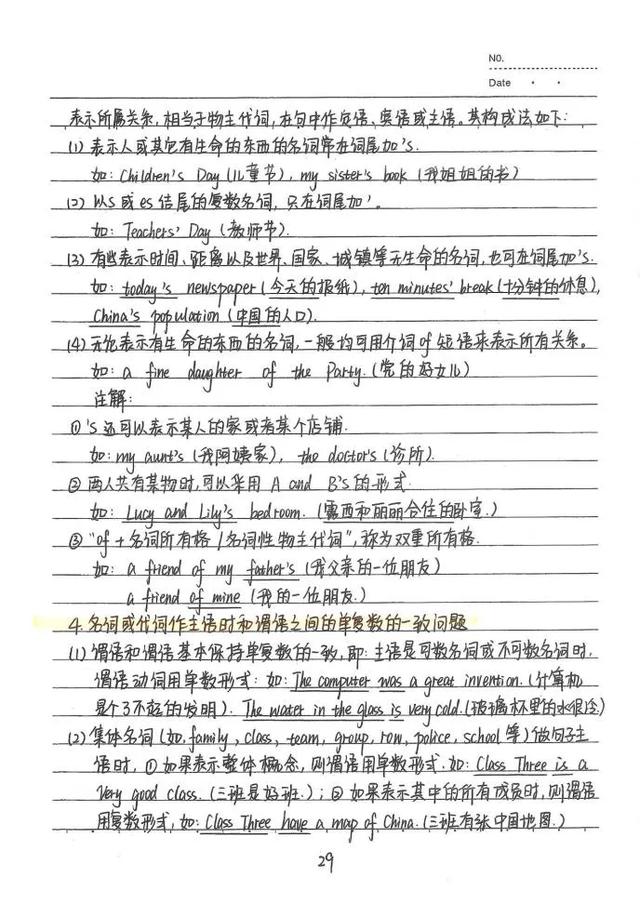 NO.
Date
表示所属关系,相当于物主代词,在句中作定语、宾语或主语。其构成法如下:
(1) 表示人或其它有生命的东西的名词常在词尾加's.
如: Children's Day (儿童节), my sister's book (我姐姐的书)
(2) 以s或es结尾的复数名词, 只在词尾加'。
如: Teachers' Day (教师节).
(3) 有些表示时间、距离以及世界、国家、城镇等无生命的名词,也可在词尾加's.
如: today's newspaper (今天的报纸), ten minutes' break (十分钟的休息),
China's population (中国的人口).
(4) 无论表示有生命的东西的名词, 一般均可用介词of短语来表示所有关系。
如: a fine daughter of the Party. (党的好女儿)
注解:
①'s还可以表示某人的家或者某个店铺.
如: my aunt's (我阿姨家), the doctor's (诊所).
② 两人共有某物时,可以采用 A and B's的形式.
如: Lucy and Lily's bedroom. (露西和丽丽合住的卧室.)
③ "of + 名词所有格 / 名词性物主代词", 称为双重所有格.
如: a friend of my father's (我父亲的一位朋友)
a friend of mine (我的一位朋友.)
4. 名词或代词作主语时和谓语之间的单复数的一致问题
(1) 谓语和谓语基本保持单复数的一致, 即: 主语是可数名词或不可数名词时,
谓语动词用单数形式: 如: The computer was a great invention. (计算机
是个了不起的发明). The water in the glass is very cold. (玻璃杯里的水很冷)
(2) 集体名词 (如, family, class, team, group, row, police, school 等) 做句子主
语时, ① 如果表示整体概念, 则谓语用单数形式. 如: Class Three is a
very good class. (三班是好班.) ; ② 如果表示其中的所有成员时, 则谓语
用复数形式, 如: Class Three have a map of China. (三班有张中国地图.)
29